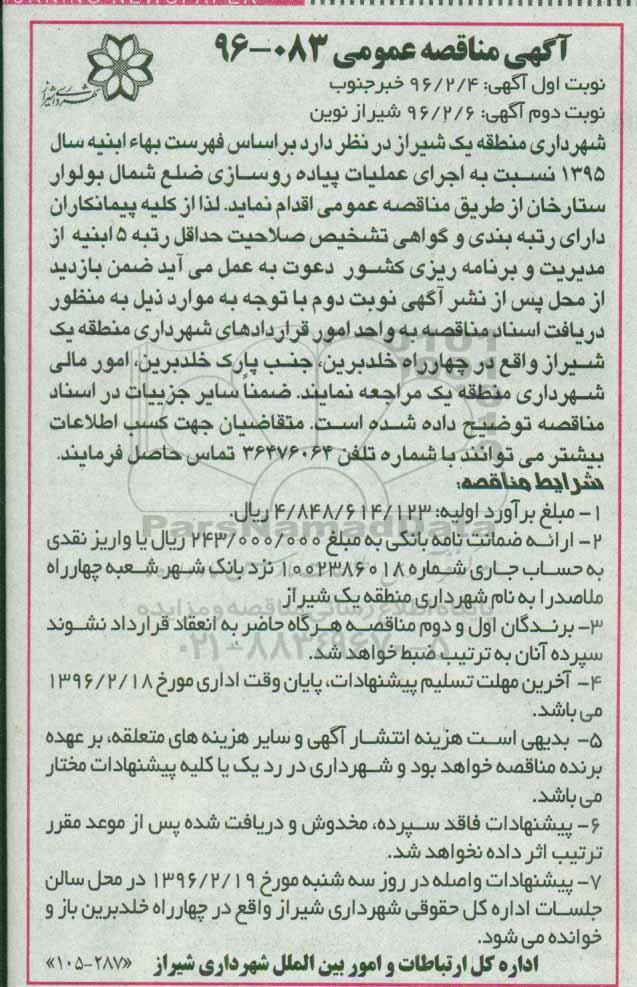 آگهی مناقصه عمومی ۰۸۳-۹۶
نوبت اول آگهی: ۹۶/۲/۴ خبرجنوب
نوبت دوم آگهی: ۹۶/۲/۶ شیراز نوین
شهرداری منطقه یک شیراز در نظر دارد براساس فهرست بهاء ابنیه سال
۱۳۹۵ نسبت به اجرای عملیات پیاده روسازی ضلع شمال بولوار
ستارخان از طریق مناقصه عمومی اقدام نماید. لذا از کلیه پیمانکاران
دارای رتبه بندی و گواهی تشخیص صلاحیت حداقل رتبه ۵ ابنیه از
مدیریت و برنامه ریزی کشور دعوت به عمل می آید ضمن بازدید
از محل پس از نشر آگهی نوبت دوم با توجه به موارد ذیل به منظور
دریافت اسناد مناقصه به واحد امور قراردادهای شهرداری منطقه یک
شیراز واقع در چهارراه خلدبرین، جنب پارک خلدبرین، امور مالی
شهرداری منطقه یک مراجعه نمایند. ضمناً سایر جزییات در اسناد
مناقصه توضیح داده شده است. متقاضیان جهت کسب اطلاعات
بیشتر می توانند با شماره تلفن ۳۶۴۷۶۰۶۴ تماس حاصل فرمایند.
شرایط مناقصه:
۱- مبلغ برآورد اولیه: ۴/۸۴۸/۶۱۴/۱۲۳ ریال.
۲- ارائه ضمانت نامه بانکی به مبلغ ۲۴۳/۰۰۰/۰۰۰ ریال یا واریز نقدی
به حساب جاری شماره ۱۰۰۲۳۸۶۰۱۸ نزد بانک شهر شعبه چهارراه
ملاصدرا به نام شهرداری منطقه یک شیراز
۳- برندگان اول و دوم مناقصه هرگاه حاضر به انعقاد قرارداد نشوند
سپرده آنان به ترتیب ضبط خواهد شد.
۴- آخرین مهلت تسلیم پیشنهادات، پایان وقت اداری مورخ ۱۳۹۶/۲/۱۸
می باشد.
۵- بدیهی است هزینه انتشار آگهی و سایر هزینه های متعلقه، بر عهده
برنده مناقصه خواهد بود و شهرداری در رد یک یا کلیه پیشنهادات مختار
می باشد.
۶- پیشنهادات فاقد سپرده، مخدوش و دریافت شده پس از موعد مقرر
ترتیب اثر داده نخواهد شد.
۷- پیشنهادات واصله در روز سه شنبه مورخ ۱۳۹۶/۲/۱۹ در محل سالن
جلسات اداره کل حقوقی شهرداری شیراز واقع در چهارراه خلدبرین باز و
خوانده می شود.
اداره کل ارتباطات و امور بین الملل شهرداری شیراز «۱۰۵-۲۸۷»
شهرداری شیراز
ParsNamadData
پایگاه اطلاع رسانی مناقصه و مزایده
۰۲۱-۸۸۳۴۹۶۷۰-۵